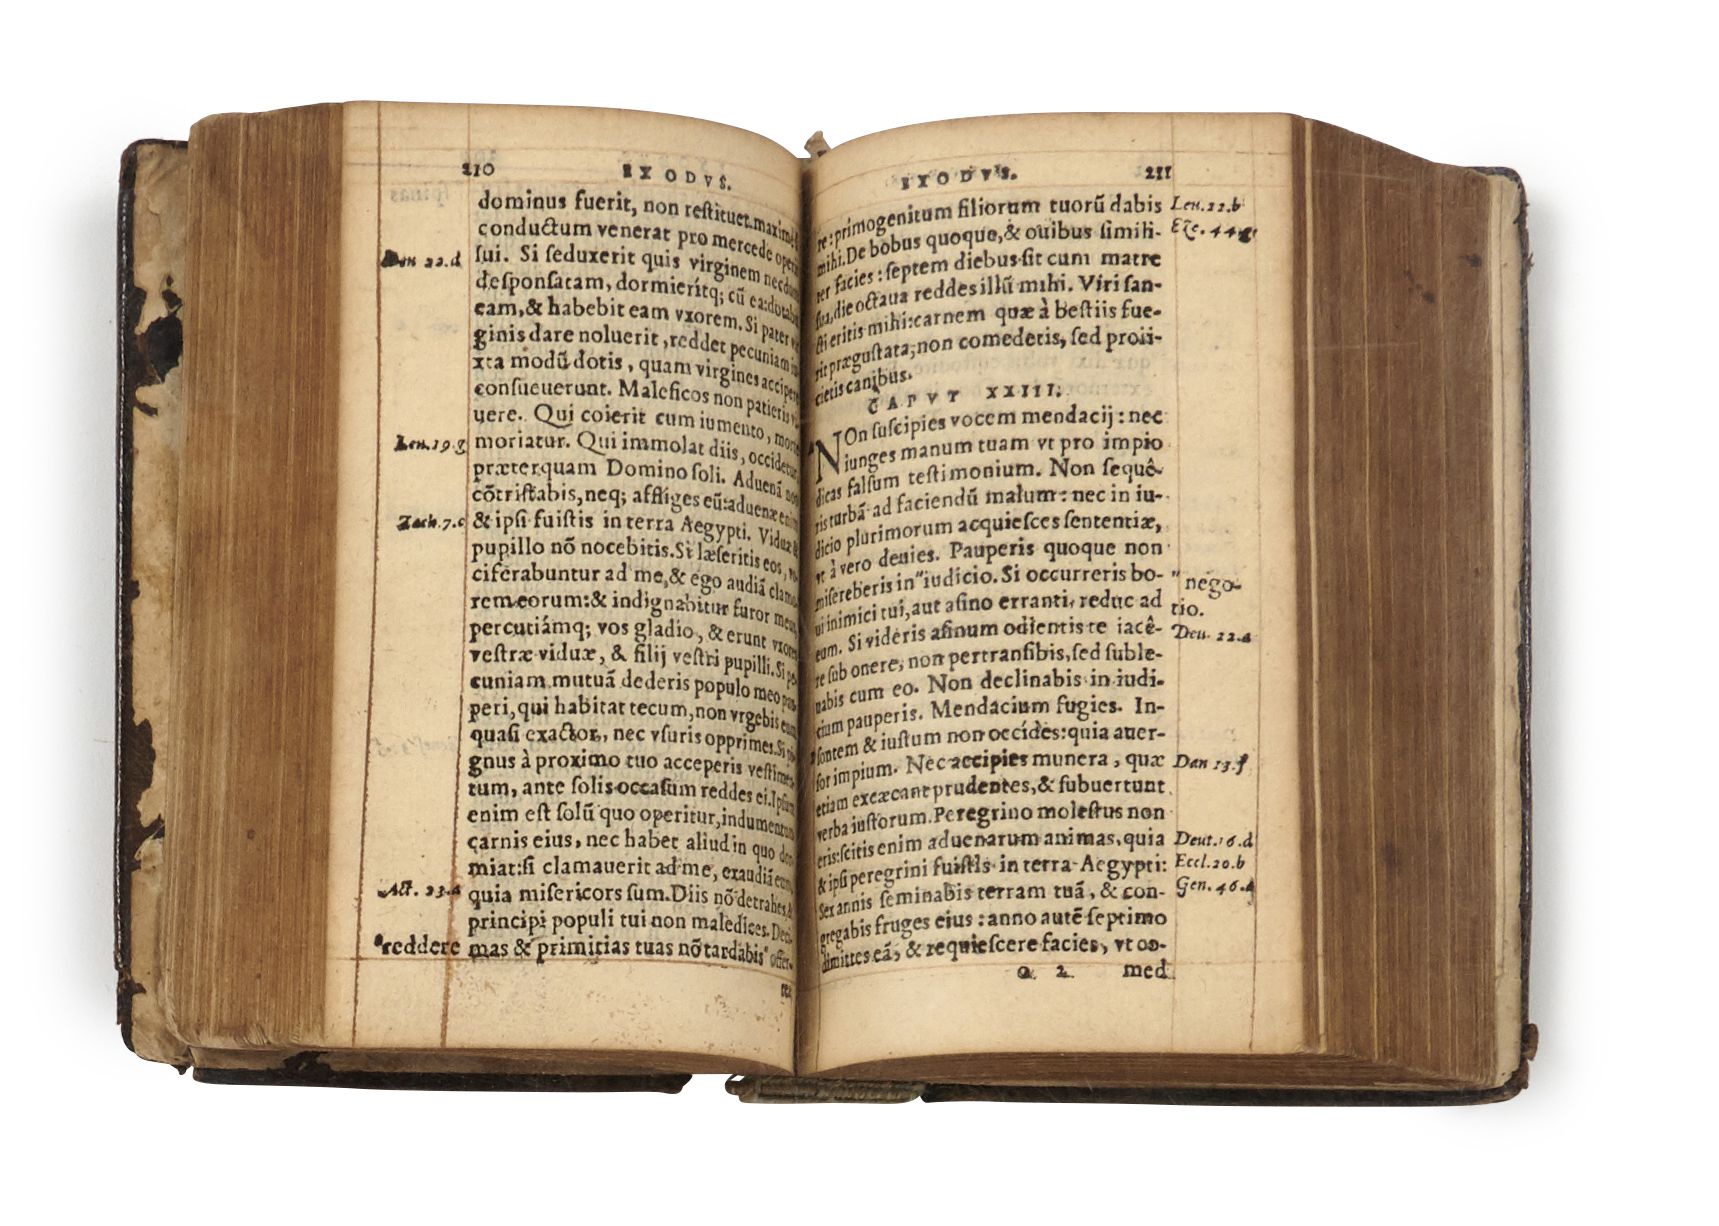 210 EXODVS.
dominus fuerit, non restituet. maximè
conductum venerat pro mercede operis
Deu 22.d
sui. Si seduxerit quis virginem necdum
desponsatam, dormieritq; cũ ea: dotabit
eam, & habebit eam vxorem. Si pater vir
ginis dare noluerit, reddet pecuniam iu
xta modũ dotis, quam virgines accipere
consueuerunt. Maleficos non patieris vi
uere. Qui coierit cum iumento, morte
Leu. 19.g
moriatur. Qui immolat diis, occidetur
præterquam Domino soli. Aduenã non
cõtristabis, neq; affliges eũ: aduenæ enim
Zach. 7.c
& ipsi fuistis in terra Aegypti. Viduæ &
pupillo nõ nocebitis. Si læseritis eos, vo
ciferabuntur ad me, & ego audiã clamo
rem eorum: & indignabitur furor meus,
percutiámq; vos gladio, & erunt vxores
vestræ viduæ, & filij vestri pupilli. Si pe
cuniam mutuã dederis populo meo pau
peri, qui habitat tecum, non vrgebis eum
quasi exactor, nec vsuris opprimes. Si pi
gnus à proximo tuo acceperis vestimen
tum, ante solis occasum reddes ei. Ipsum
enim est solũ quo operitur, indumentum
carnis eius, nec habet aliud in quo dor
miat: si clamauerit ad me, exaudiã eum,
Act. 23.a
quia misericors sum. Diis nõ detrahes, &
principi populi tui non maledices. Deci
"reddere
mas & primitias tuas nõ tardabis" offer-
re:
EXODVS. 211
re: primogenitum filiorum tuorũ dabis
Leu. 22.b
mihi. De bobus quoque, & ouibus simili-
Eze. 44.g
ter facies: septem diebus sit cum matre
sua, die octaua reddes illũ mihi. Viri san-
cti eritis mihi: carnem quæ à bestiis fue-
rit prægustata, non comedetis, sed proii-
cietis canibus.
CAPVT XXIII.
NOn suscipies vocem mendacij: nec
iunges manum tuam vt pro impio
dicas falsum testimonium. Non sequê-
ris turbã ad faciendũ malum: nec in iu-
dicio plurimorum acquiesces sententiæ,
vt à vero deuies. Pauperis quoque non
misereberis in "iudicio. Si occurreris bo-
"nego-
ui inimici tui, aut asino erranti, reduc ad
tio.
eum. Si videris asinum odientis te iacê-
Deu. 22.a
re sub onere, non pertransibis, sed suble-
uabis cum eo. Non declinabis in iudi-
cium pauperis. Mendacium fugies. In-
sontem & iustum non occídes: quia auer-
sor impium. Nec accipies munera, quæ
Dan 13.f
etiam excæcant prudentes, & subuertunt
verba iustorum. Peregrino molestus non
eris: scitis enim aduenarum animas, quia
Deut. 16.d
& ipsi peregrini fuistis in terra Aegypti:
Eccl. 20.b
Sex annis seminabis terram tuã, & con-
Gen. 46.
gregabis fruges eius: anno autẽ septimo
dimittes eã, & requiescere facies, vt co-
o 2 med